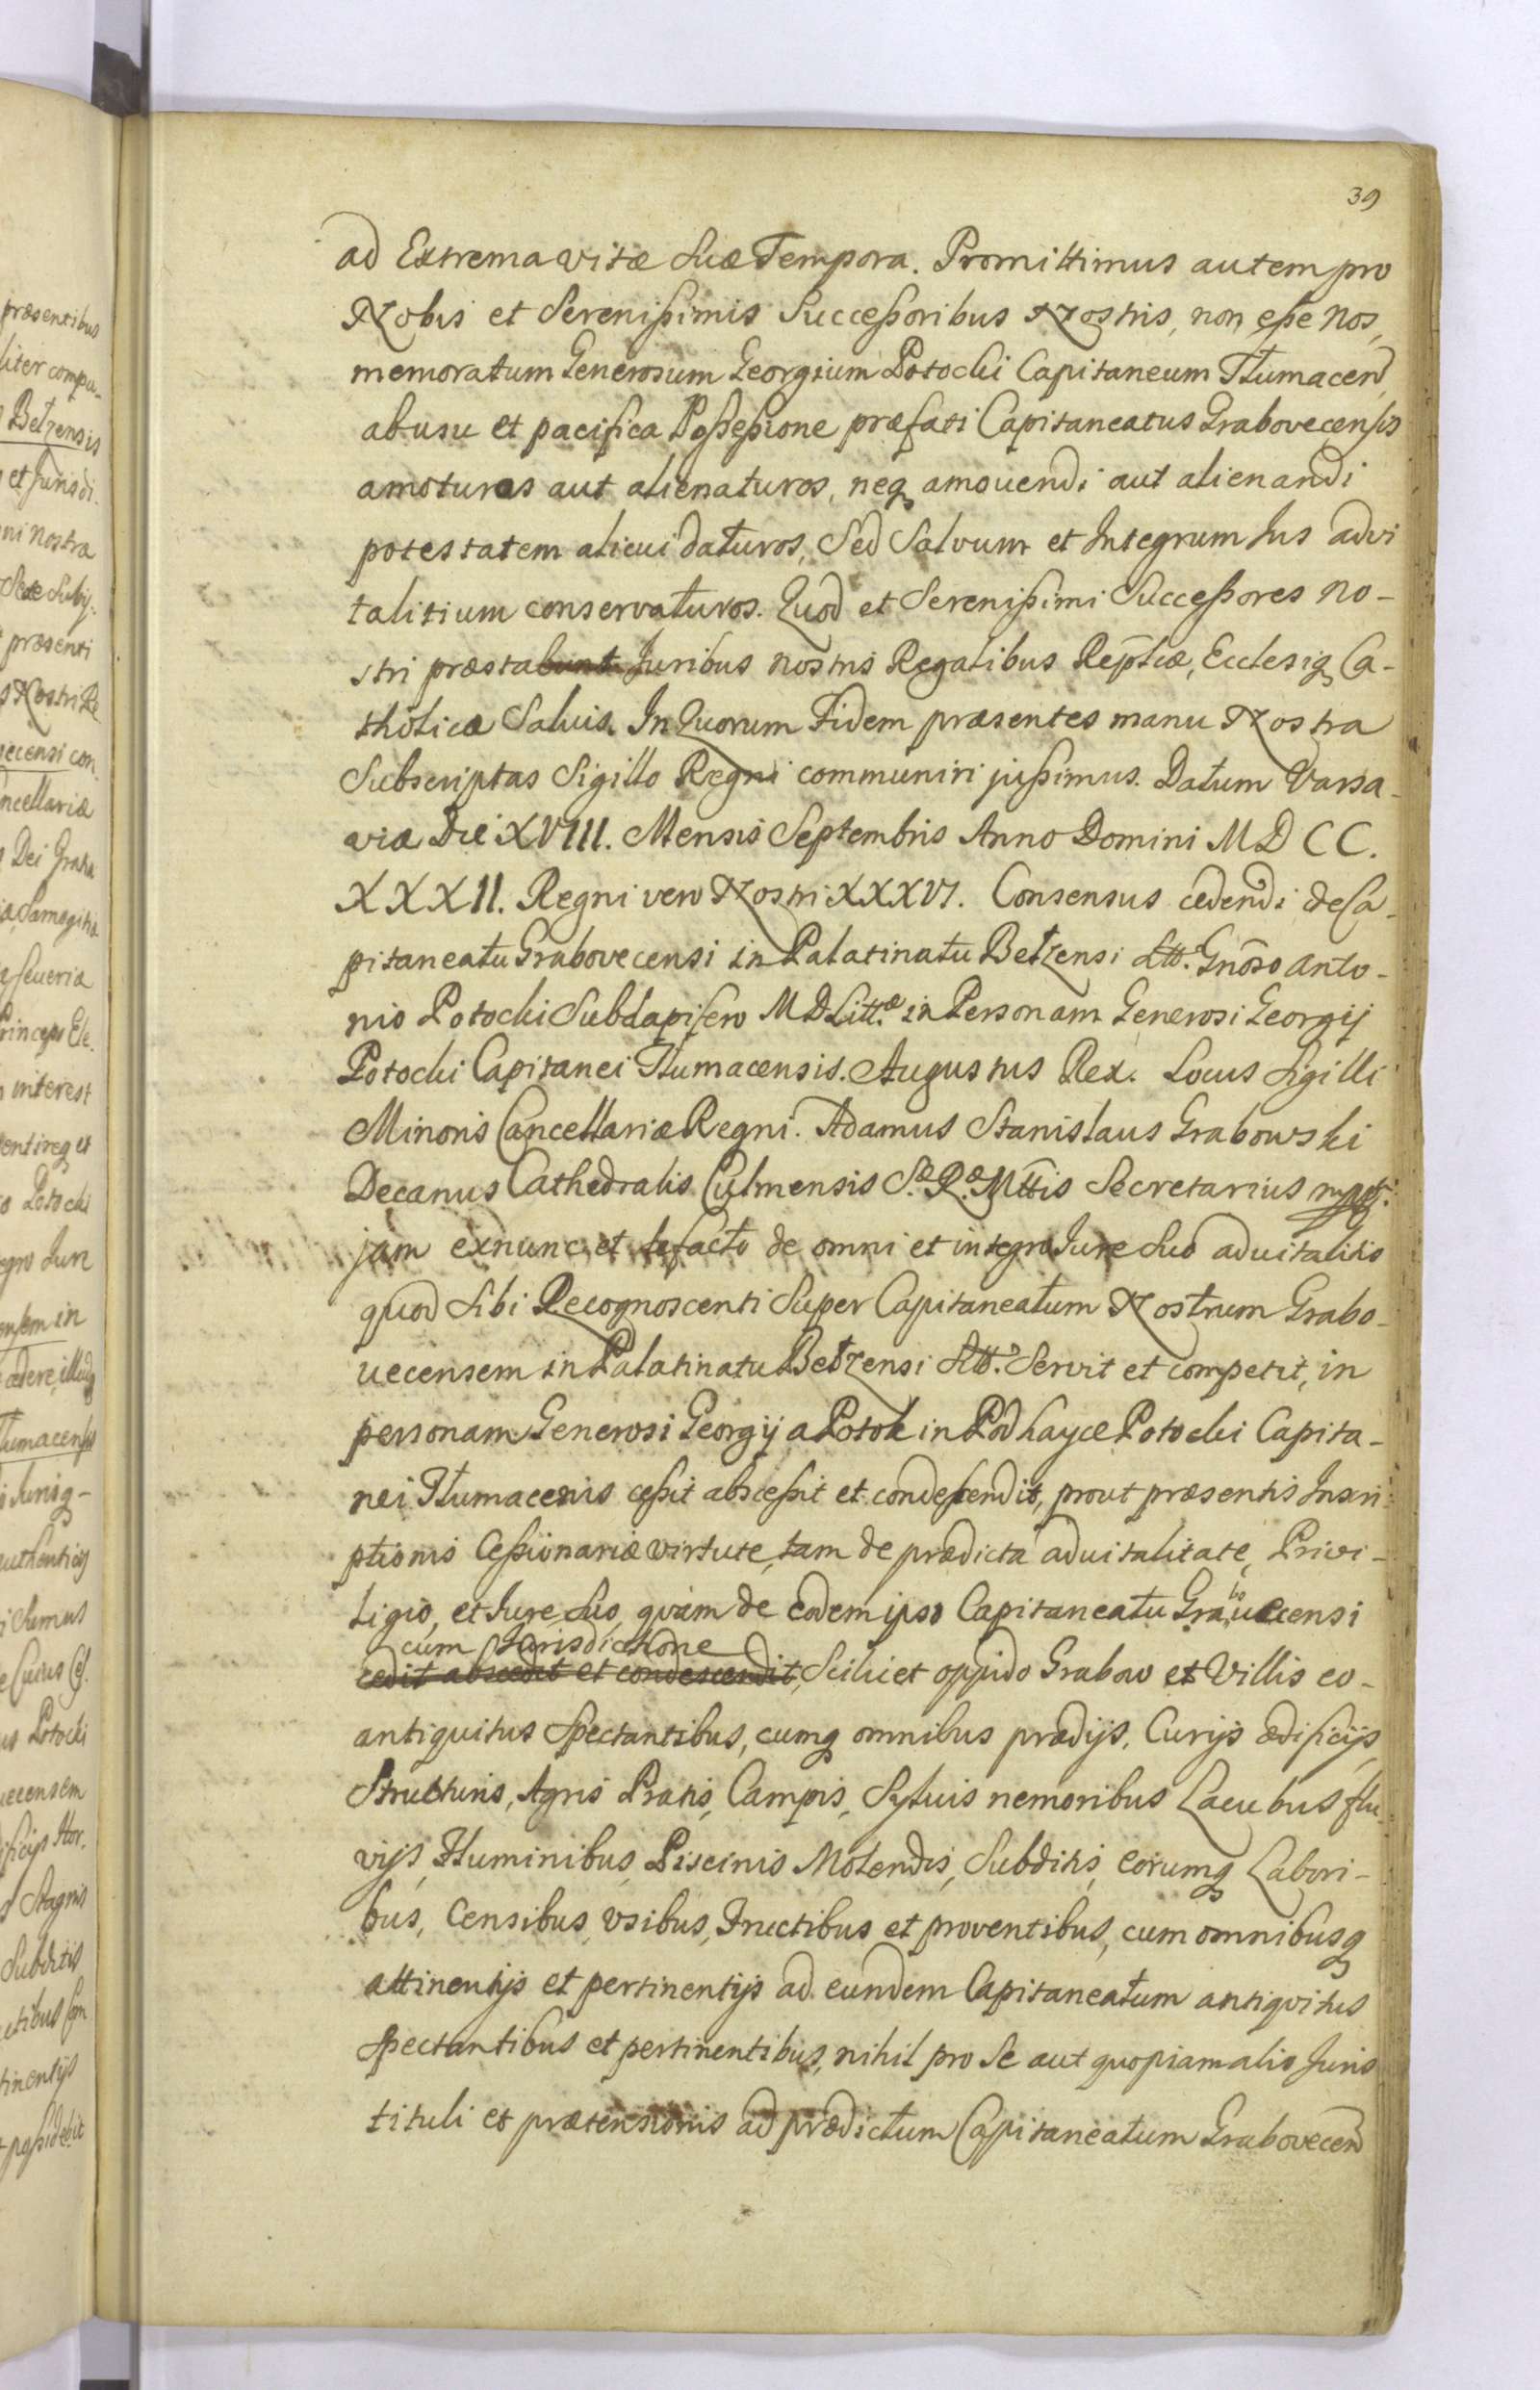 39
ad Extrema vitæ Suæ Tempora. Promittimus autem pro
Nobis et Serenißimis Succeßoribus Nostris, non eße Nos,
memoratum Generosum Georgium Potocki Capitaneum Tłumacen
ab usu et pacifica Poßeßione præfati Capitaneatus Grabovecensis
amoturos aut alienaturos, neq amovendi aut alienandi
potestatem alicui daturos, Sed Salvum et Integrum Jus advi
talitium conservaturos. Quod et Serenißimi Succeßores no-
stri præstabunt Juribus nostris Regalibus Reptcæ, Ecclesiæq Ca-
tholicæ Salvis. In Quorum Fidem præsentes manu Nostra
Subscriptas Sigillo Regni communiri jußimus. Datum Varsa-
viæ Die XVIII. Mensis Septembris Anno Domini MDCC.
XXXII. Regni vero Nostri XXXVI. Consensus cedendi de Ca-
pitaneatu Grabovecensi in Palatinatu Bełzensi Stto. Gnoso Anto-
nio Potocki Subdapifero M D Littæ in Personam Generosi Georgij
Potocki Capitanei Tłumacensis. Augustus Rex. Locus Sigilli
Minoris Cancellariæ Regni. Adamus Stanislaus Grabowski
Decanus Cathedralis Culmensis Sæ. Ræ. Mttis Secretarius mpp.
jam exnunc et defacto de omni et integro Jure Suo advitalitio
quod Sibi Recognoscenti Super Capitaneatum Nostrum Grabo-
vecensem in Palatinatu Bełzensi Stto. Servit et competit, in
personam Generosi Georgij a Potok in Podhayce Potocki Capita-
nei Tłumacensis ceßit absceßit et condescendit, prout præsentis Inscri-
ptionis Ceßionariæ virtute, tam de prædicta advitalitate, Privi-
ligio, et Jure Suo, quam de eodem ipso Capitaneatu Grabouecensi
cum Jurisdictione
cedit abscedit et condescendit, Scilicet oppido Grabow et Villis eo-
antiquitus Spectantibus, cumq omnibus prædijs, Curijs ædificijs,
Structuris, Agris Pratis, Campis, Sylvis nemoribus Lacubus flu-
vijs, Fluminibus, Piscinis Molendis, Subditis, eorumq Labori-
bus, Censibus, vsibus, Fructibus et proventibus, cum omnibusq
attinentijs et pertinentijs ad eundem Capitaneatum antiquitus
Spectantibus et pertinentibus, nihil pro Se aut quopiam alio Juris
tituli et prætensionis ad prædictum Capitaneatum Grabovecen